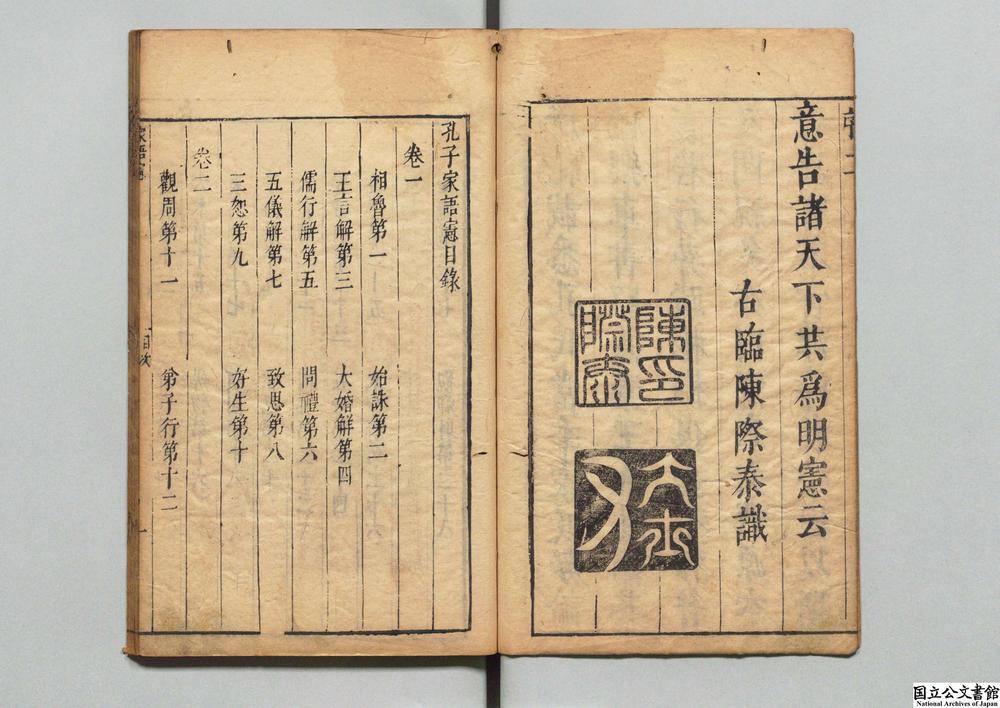 意告諸天下共爲明憲云
古臨陳際泰識
陳印
際泰
大士
父
孔子家語憲目錄
卷一
相魯第一　始誅第二
王言解第三　大婚解第四
儒行解第五　問禮第六
五儀解第七　致思第八
三恕第九　好生第十
卷二
觀周第十一　弟子行第十二
家語憲
目次
一
国立公文書館
National Archives of Japan